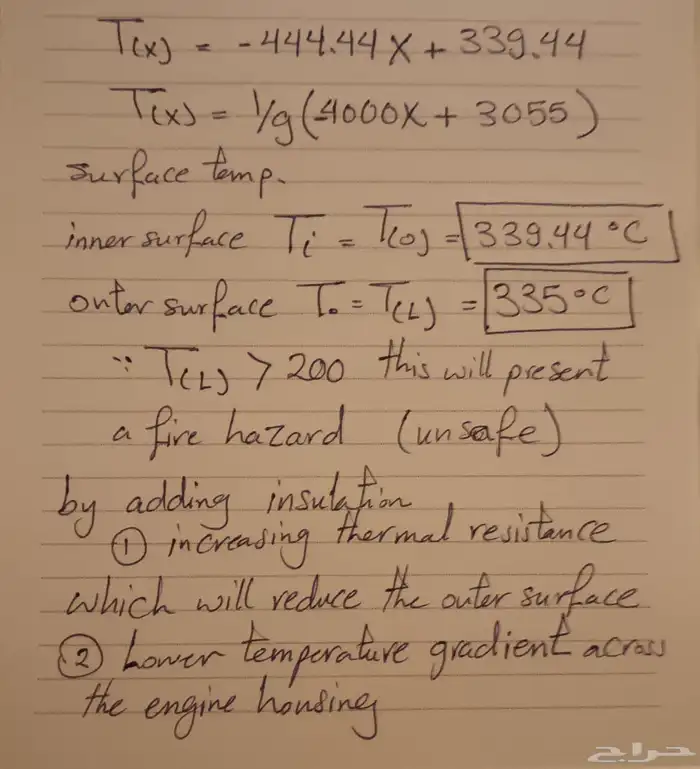 T(x) = -444.44X + 339.44
T(x) = 1/9(-4000X + 3055)
surface temp.
inner surface Ti = T(0) = 339.44 °C
outer surface To = T(L) = 335°C
∵ T(L) > 200 this will present
a fire hazard (unsafe)
by adding insulation
① increasing thermal resistance
which will reduce the outer surface
② Lower temperature gradient across
the engine housing
حراج